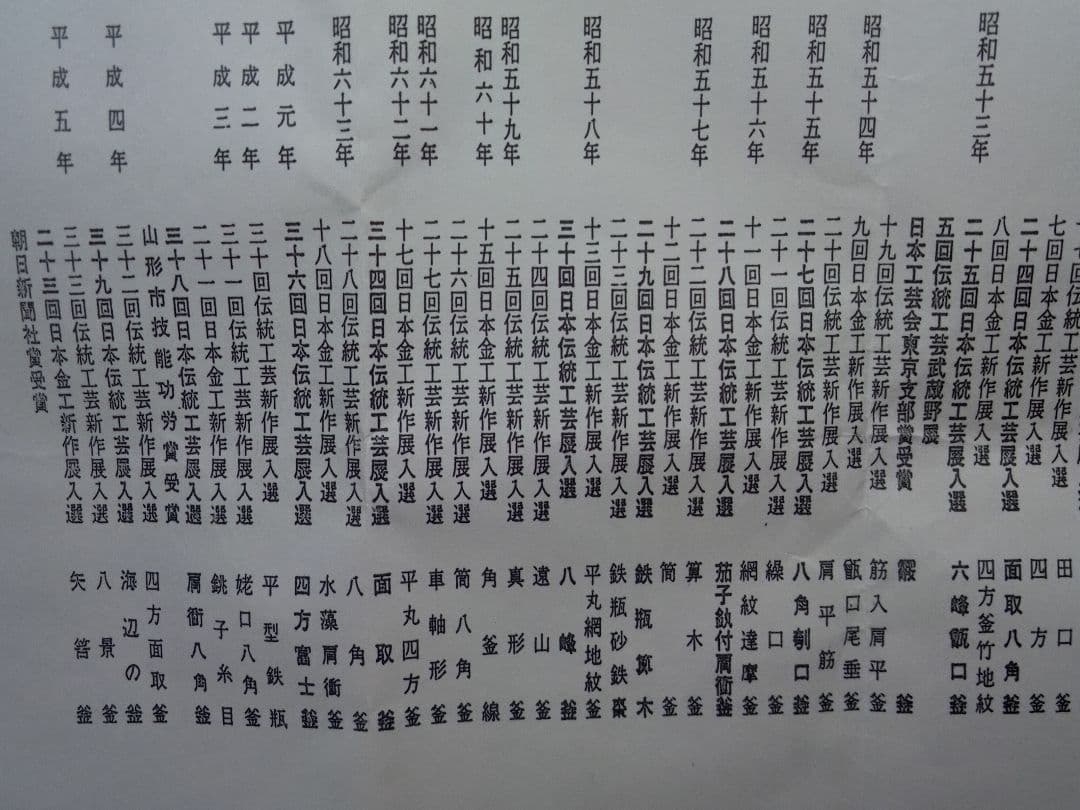 昭和五十三年
昭和五十四年
昭和五十五年
昭和五十六年
昭和五十七年
昭和五十八年
昭和五十九年
昭和六十年
昭和六十一年
昭和六十二年
昭和六十三年
平成元年
平成二年
平成三年
平成四年
平成五年
七回日本金工新作展入選
二十四回日本伝統工芸展入選
八回日本金工新作展入選
二十五回日本伝統工芸展入選
五回伝統工芸武蔵野展
日本工芸会東京支部賞受賞
十九回伝統工芸新作展入選
九回日本金工新作展入選
二十回伝統工芸新作展入選
二十七回日本伝統工芸展入選
二十一回伝統工芸新作展入選
十一回日本金工新作展入選
二十八回日本伝統工芸展入選
二十二回伝統工芸新作展入選
十二回日本金工新作展入選
二十九回日本伝統工芸展入選
二十三回伝統工芸新作展入選
十三回日本金工新作展入選
三十回日本伝統工芸展入選
二十四回伝統工芸新作展入選
二十五回伝統工芸新作展入選
十五回日本金工新作展入選
二十六回伝統工芸新作展入選
二十七回伝統工芸新作展入選
十七回日本金工新作展入選
三十四回日本伝統工芸展入選
二十八回伝統工芸新作展入選
十八回日本金工新作展入選
三十六回日本伝統工芸展入選
三十回伝統工芸新作展入選
三十一回伝統工芸新作展入選
二十一回日本金工新作展入選
三十八回日本伝統工芸展入選
山形市技能功労賞受賞
三十二回伝統工芸新作展入選
三十九回日本伝統工芸展入選
三十三回伝統工芸新作展入選
二十三回日本金工新作展入選
朝日新聞社賞受賞
田口釜
四方釜
面取八角釜
四方釜竹地紋
六峰甑口釜
霰釜
筋入肩平釜
甑口尾垂釜
肩平筋釜
八角刳口釜
繰口釜
網紋達摩釜
茄子釻付肩衝釜
算木釜
筒釜
鉄瓶算木
鉄瓶砂鉄棗
平丸網地紋釜
八峰釜
遠山釜
真形釜
角釜線
筒八角釜
車軸形釜
平丸四方釜
面取釜
八角釜
水藻肩衝釜
四方富士釜
平型鉄瓶
姥口八角釜
銚子糸目
肩衝八角釜
四方面取釜
海辺の釜
八景釜
矢筈釜